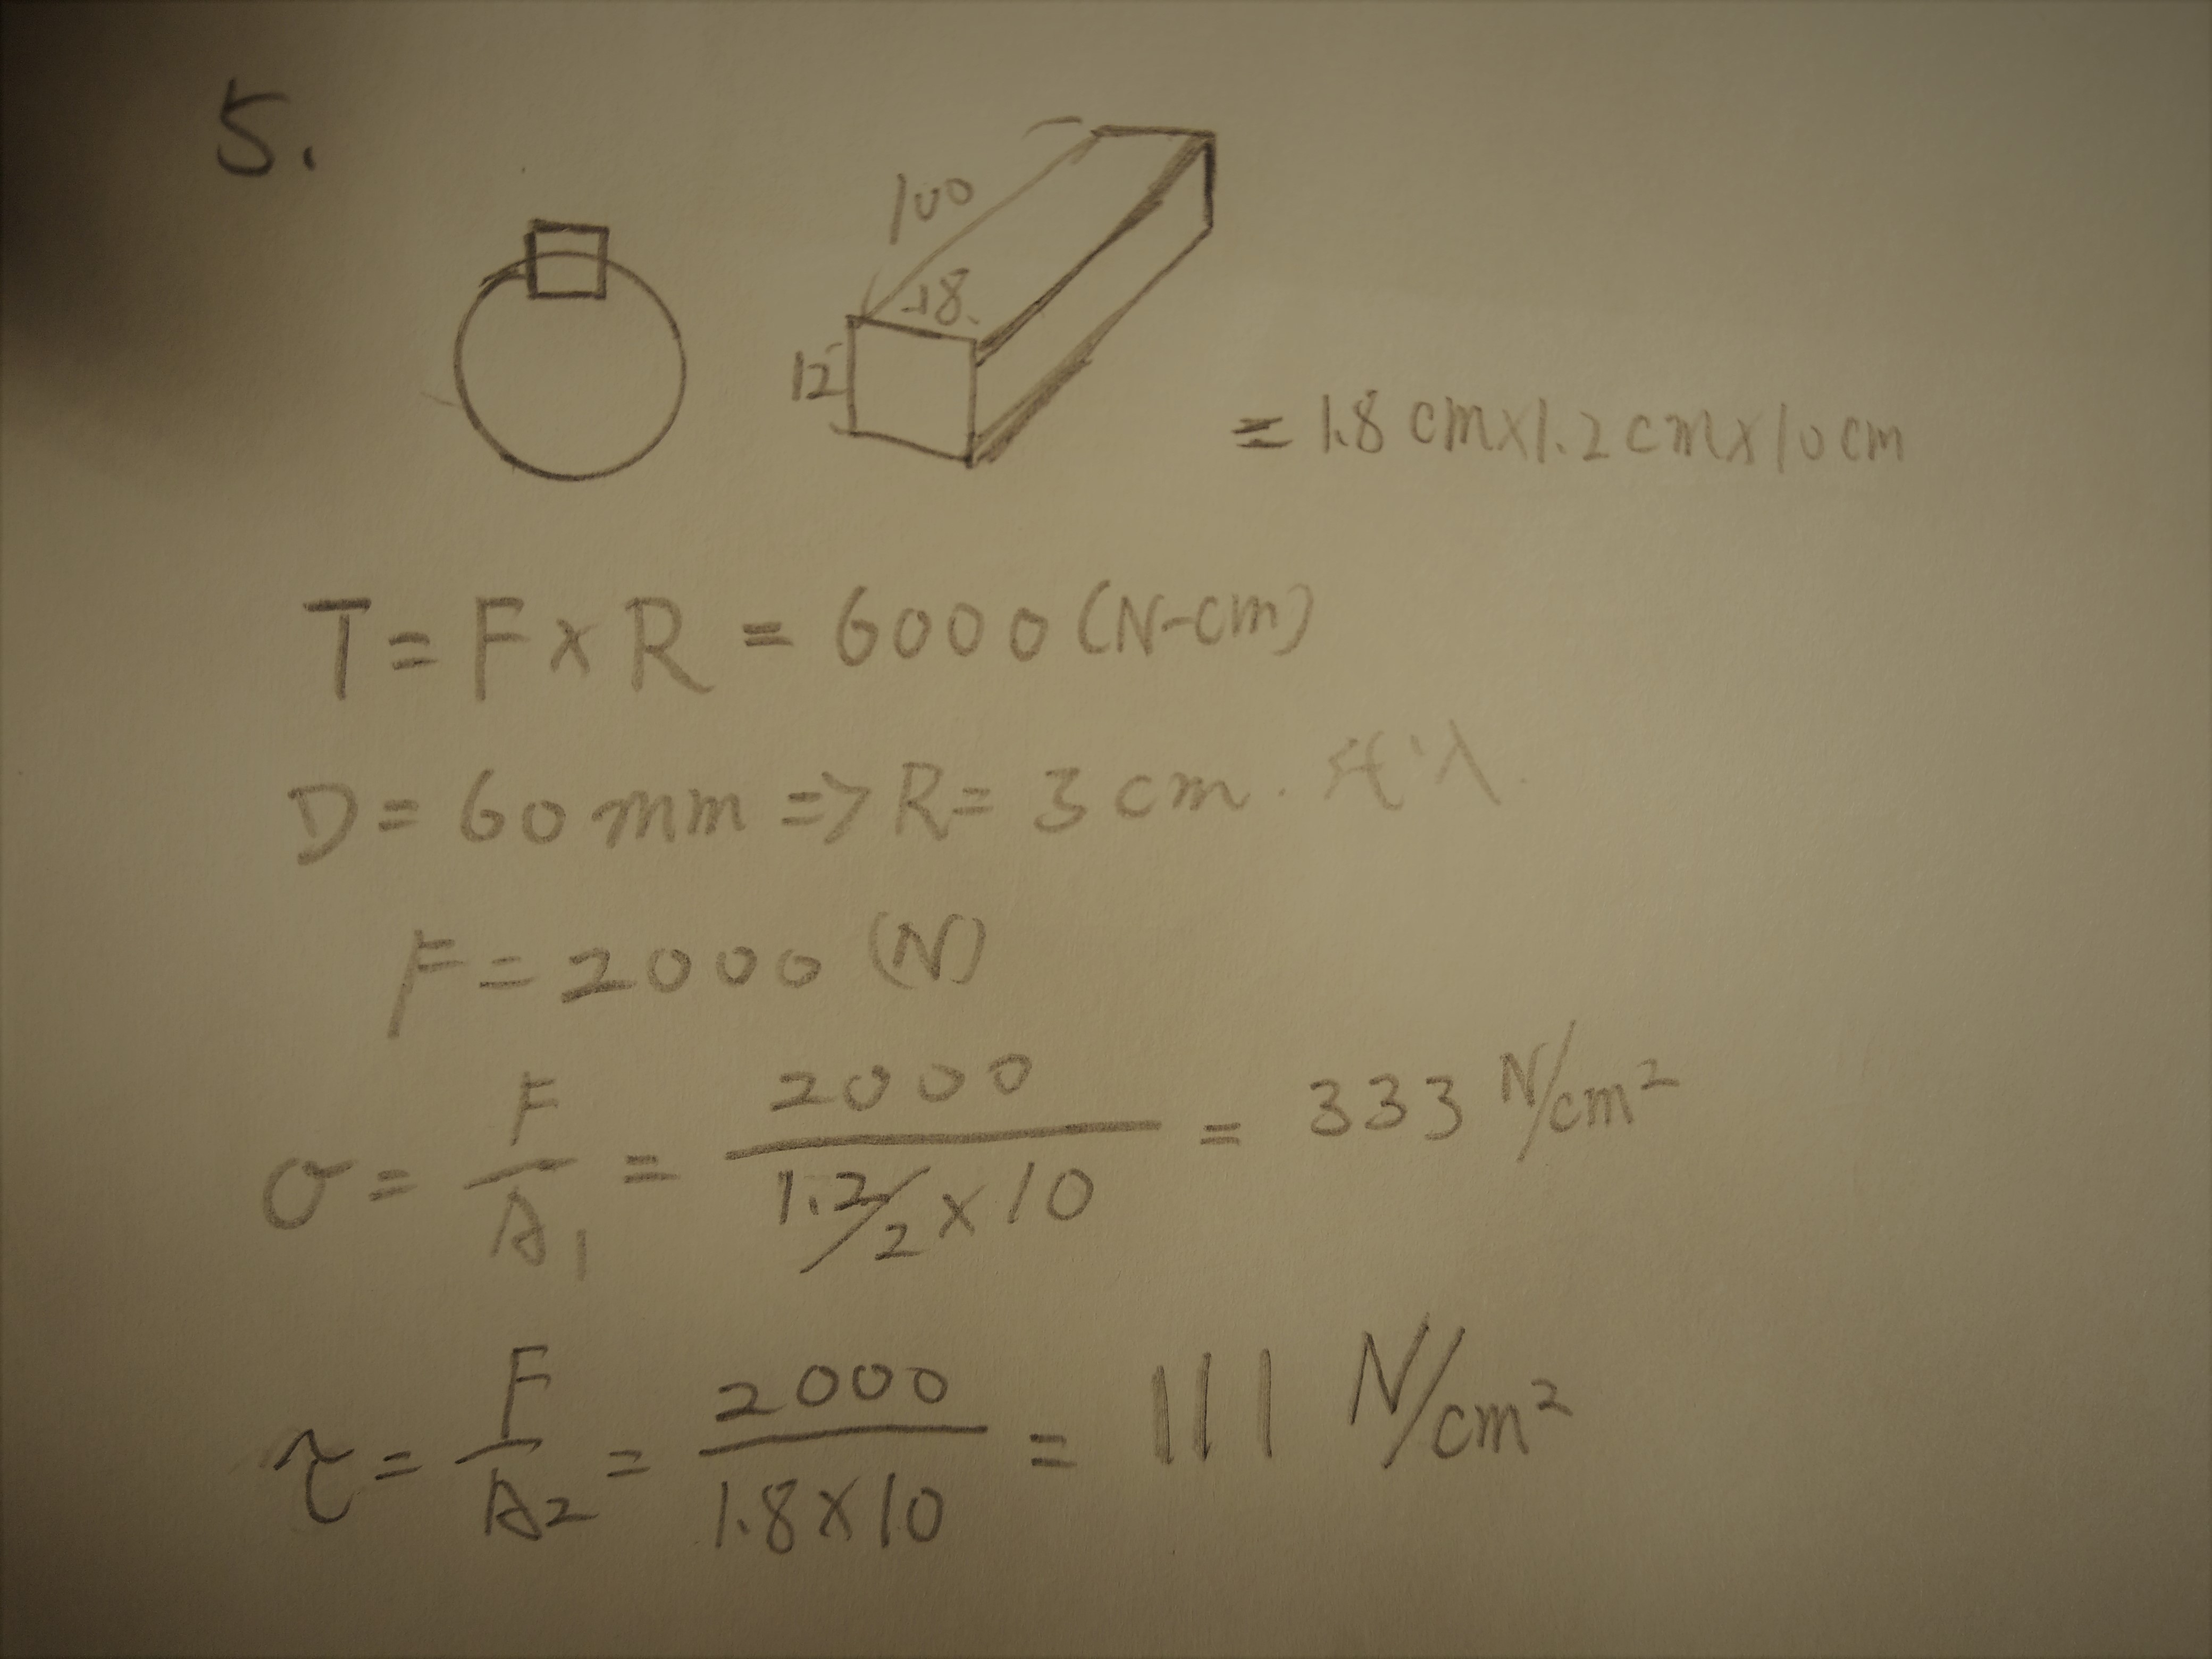 5.
100
18
12
= 1.8 cm×1.2 cm×10 cm
T = F × R = 6000 (N-cm)
D = 60 mm => R = 3 cm. 代入.
F = 2000 (N)
σ = F/A₁ = 2000/(1.2/2 × 10) = 333 N/cm²
τ = F/A₂ = 2000/(1.8×10) = 111 N/cm²